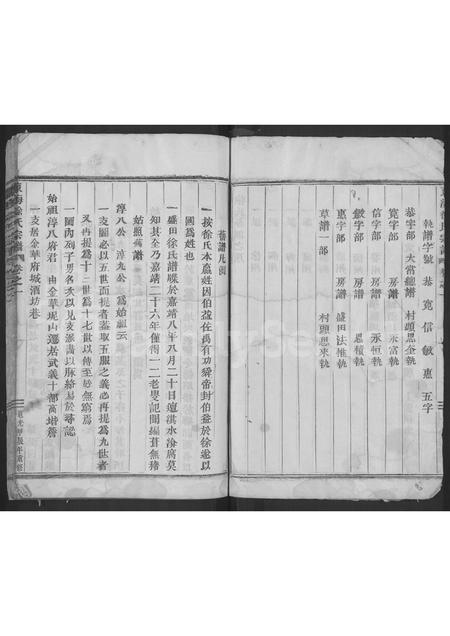 執譜字號 恭 寬 信 敏 惠 五字
恭字部 大當總譜 村頭思金執
寬字部 房譜 永富執
信字部 房譜 永恒執
敏字部 房譜 思積執
惠字部 房譜 盛田法惟執
草譜一部 村頭思來執
舊譜凡例
一按徐氏本嬴姓因伯益佐禹有功舜帝封伯益於徐遂以
國爲姓也
一盛田徐氏譜牒於嘉靖八年八月二十日遭洪水淪腐莫
知其全乃嘉靖二十六年僅得一二老叟記聞編葺無殊
姑照舊譜
淳八公 淳九公 爲始祖云
一支圖必以五世而提者蓋取五服之義必再提爲九世者
又再提爲十三世爲十七世以傳至於無窮焉
一圖內列子男名次以見支派書以脉絡易於尋認
始祖淳八府君 由金華坭山遷居武義十都高塘
一支居金華府城酒坊巷
東海徐氏宗譜 卷之一
道光甲辰年重修